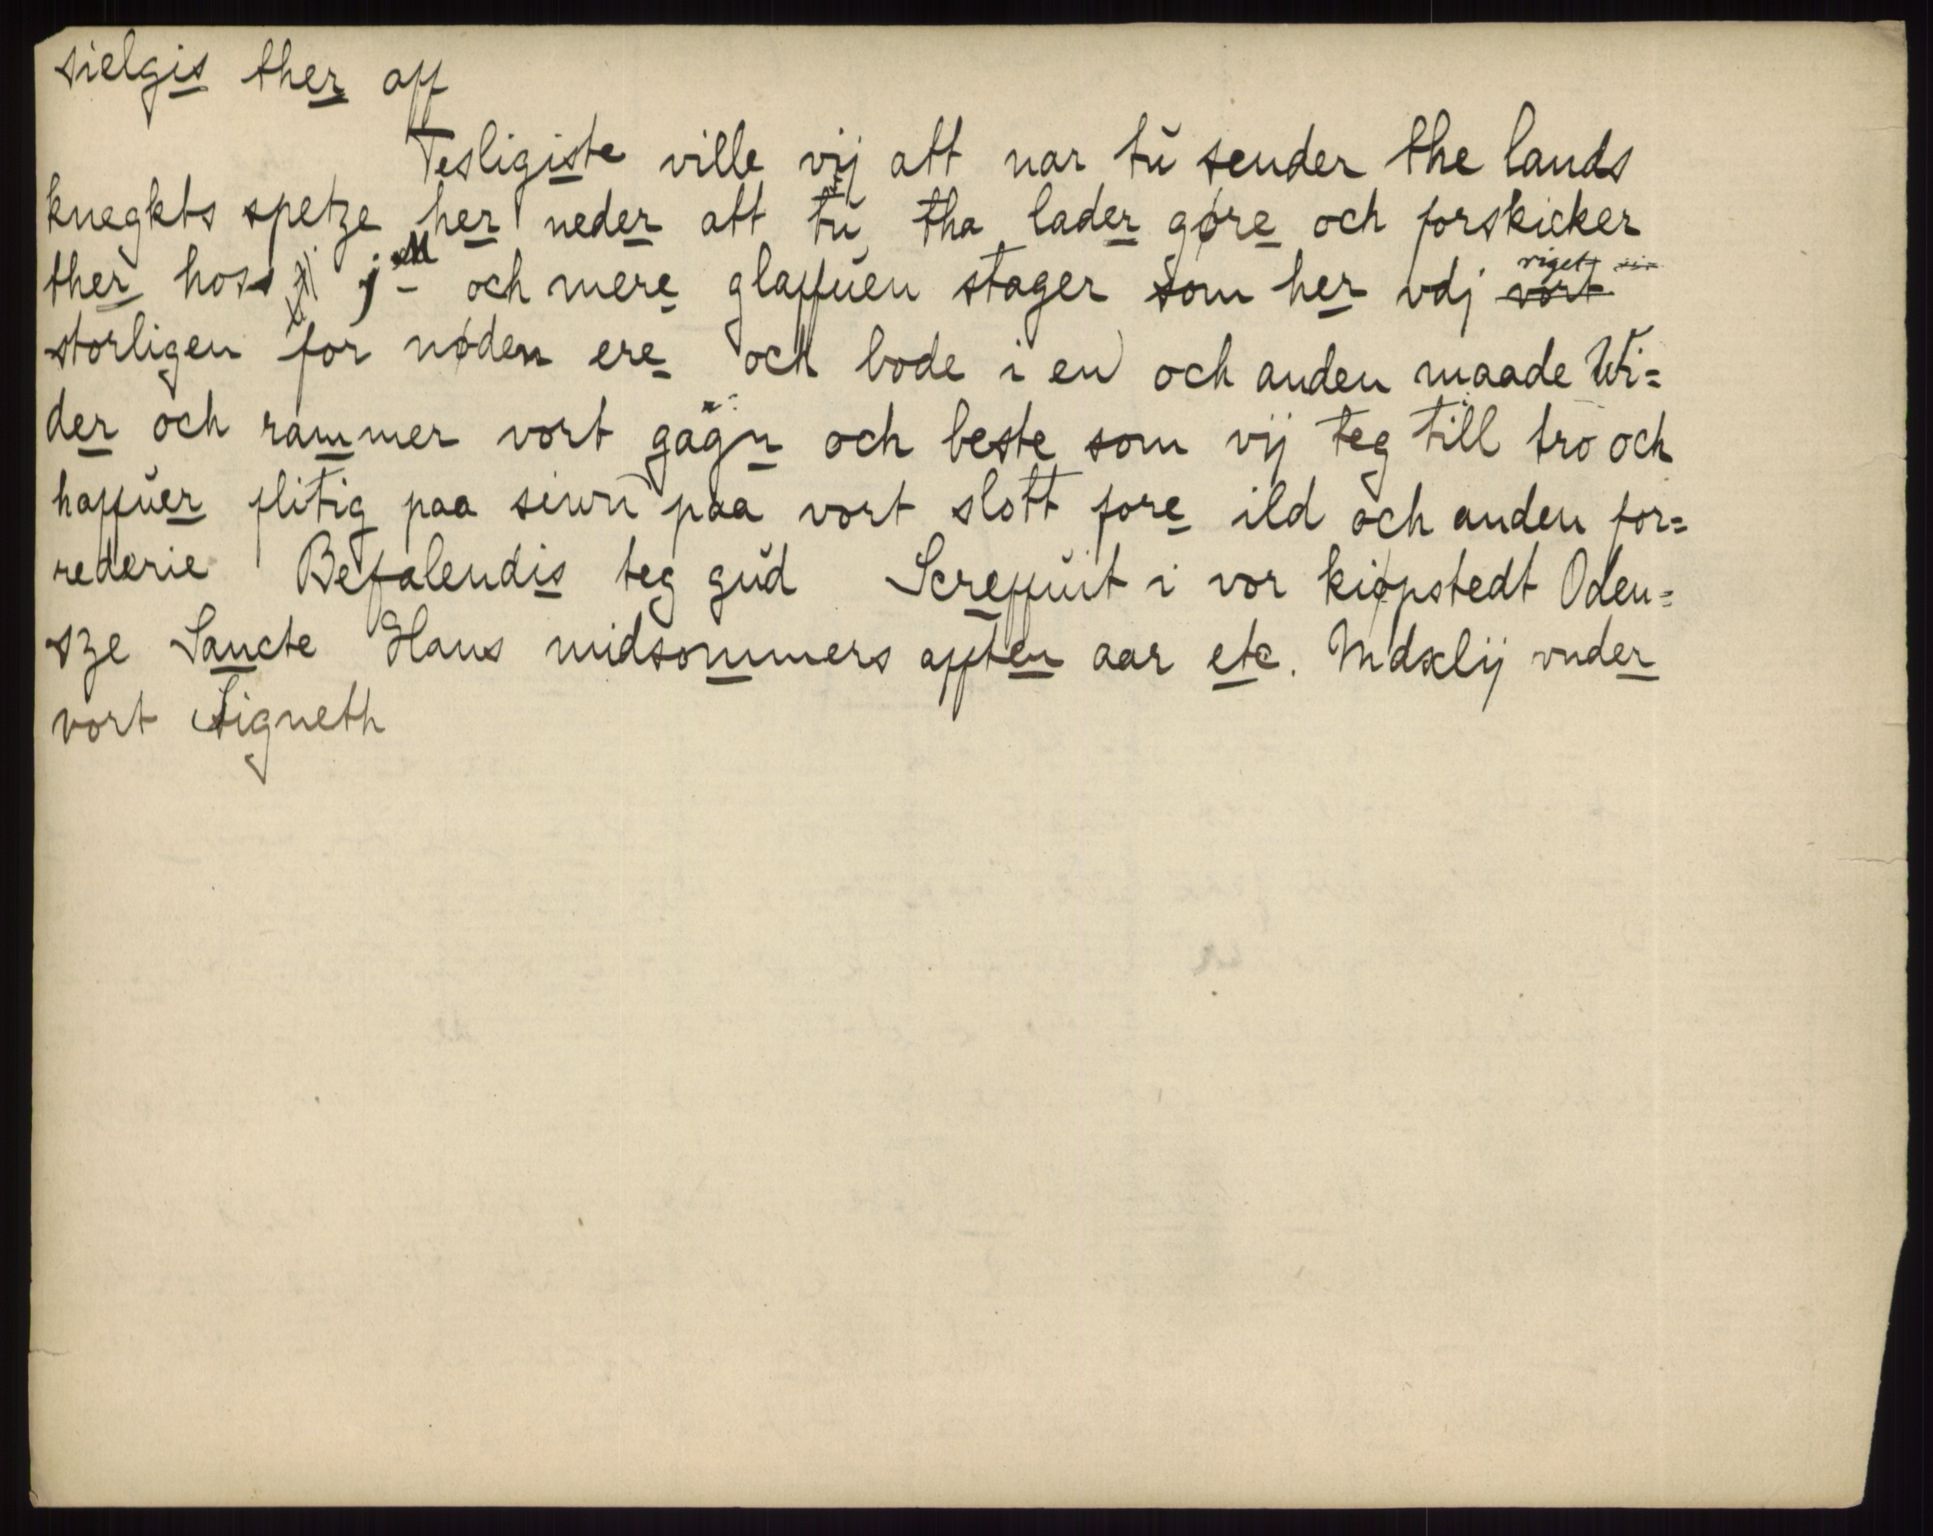 sielgis ther aff
Tesligiste ville vij att nar tů sender the lands
knegkts spetze her neder att tů tha lader gøre och forskicker
ther hoss jM och mere glaffůen stager som her vdj riget vort
storligen for nøden ere och bode i en och anden maade Wi=
der och rammer vort gagn och beste som vij teg till tro och
haffůer flitig paa siwn paa vort slott fore ild och anden for=
rederie Befalendis teg gůd Screffuit i vor kiøpstedt Oden=
sze Sancte Hans midsommers afften aar etc. Mdxlij vnder
vort Signeth